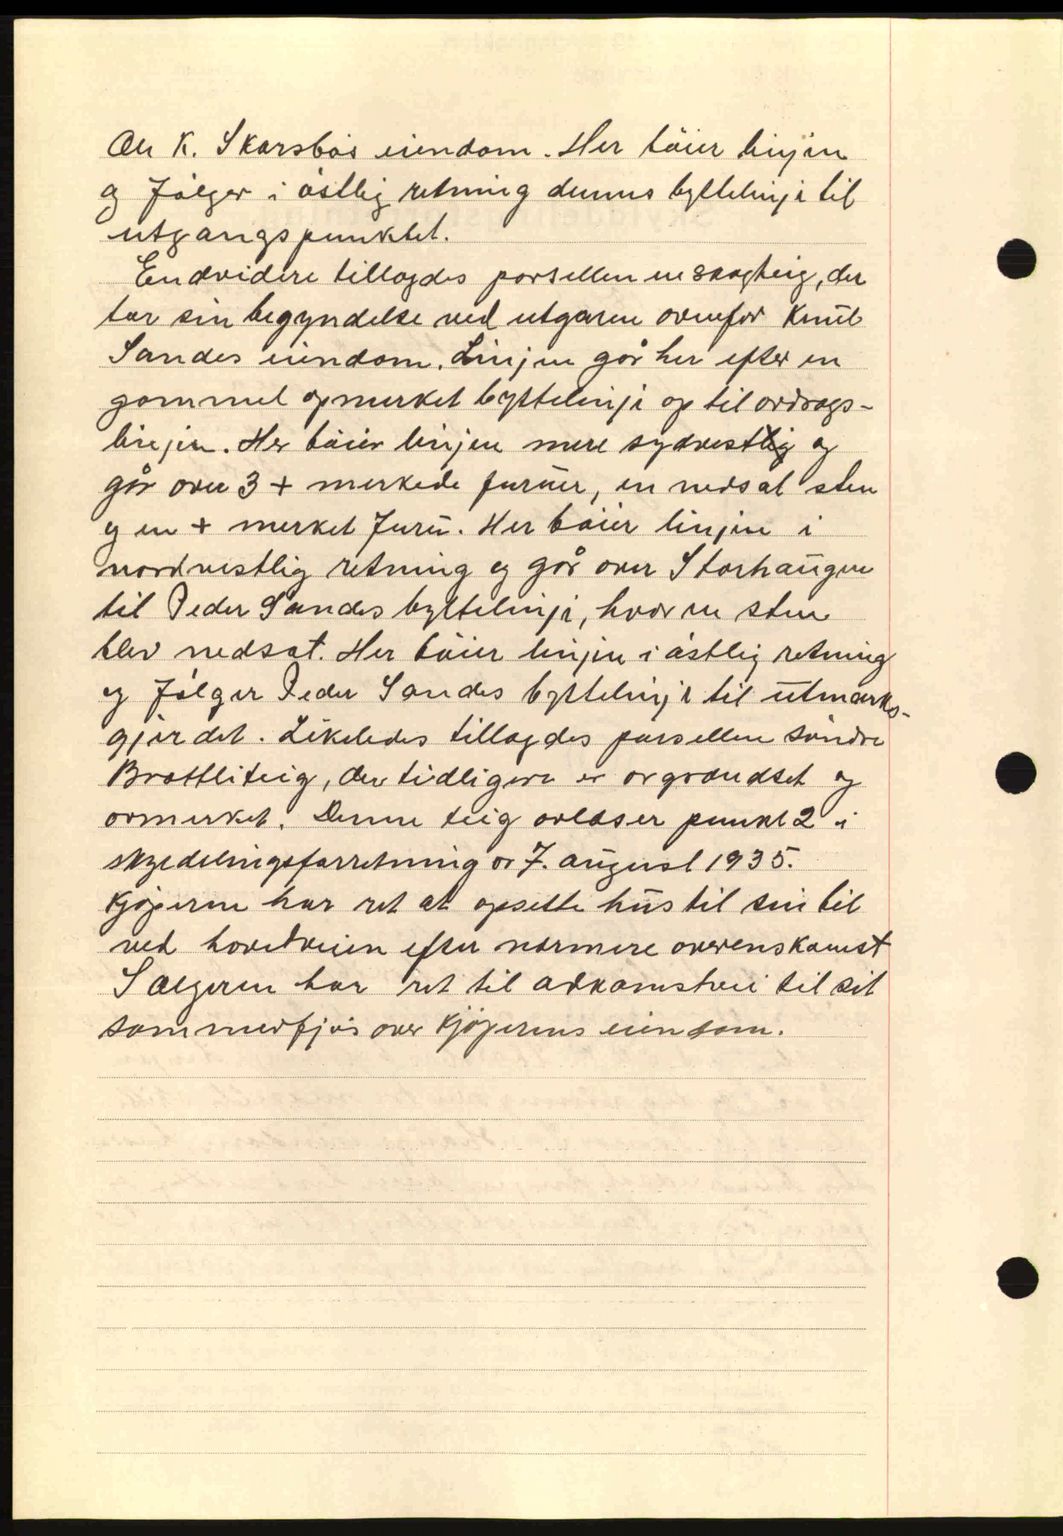 Ole K. Skarsbøs eiendom. Her bøier linjen
og følger i østlig retning dennes byttelinje til
utgangspunktet.
Endvidere tillagdes parsellen en skogteig, der
tar sin begyndelse ved utgaren ovenfor Knut
Sandes eiendom. Linjen går her efter en
gammel opmerket byttelinje op til avdrags-
linjen. Her bøier linjen mere sydvestlig og
går over 3 + merkede furuer, en nedsat sten
og en + merket furu. Her bøier linjen i
nordvestlig retning og går over Storhaugen
til Peder Sandes byttelinje, hvor en sten
blev nedsat. Her bøier linjen i østlig retning
og følger Peder Sandes byttelinje til utmarks-
gjerdet. Likeledes tillagdes parsellen søndre
Brattliteig, der tidligere er avgrændset og
avmerket. Denne teig avløser punkt 2 i
skyldelingsforretning av 7. august 1935.
Kjøperne har ret at opsette hus til sin bil
ved hovedveien efter nærmere overenskomst
Sælgeren har ret til adkomstvei til sit
sommerfjøs over kjøperens eiendom.